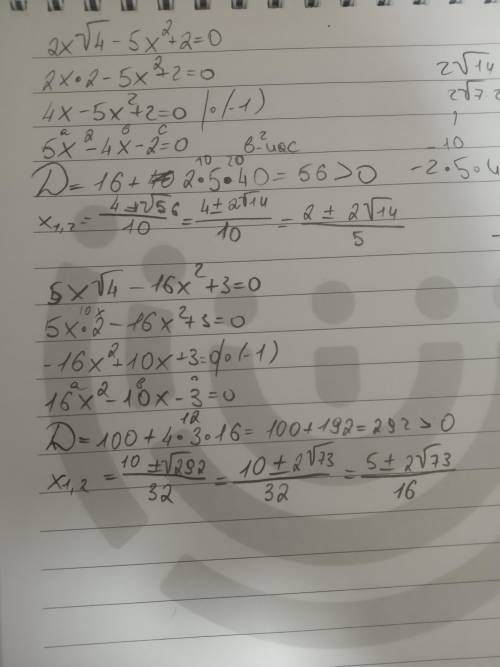 2x√4 - 5x²+2=0
2x•2 - 5x²+2=0
4x-5x²+2=0 /•(-1)
a b c
5x²-4x-2=0
10 20
D= 16+ 2•5•40= 56>0
x1,2= (4±√56)/10 = (4±2√14)/10 = (2 ± 2√14)/5
2√14
2√7.2
-10
-2•5•4
5x√4 - 16x²+3=0
10x
5x•2 - 16x²+3=0
-16x²+10x+3=0/•(-1)
a b
16x²-10x-3=0
12
D=100+4•3•16= 100+192=292>0
x1,2 = (10 ±√292)/32 = (10±2√73)/32 = (5± 2√73)/16